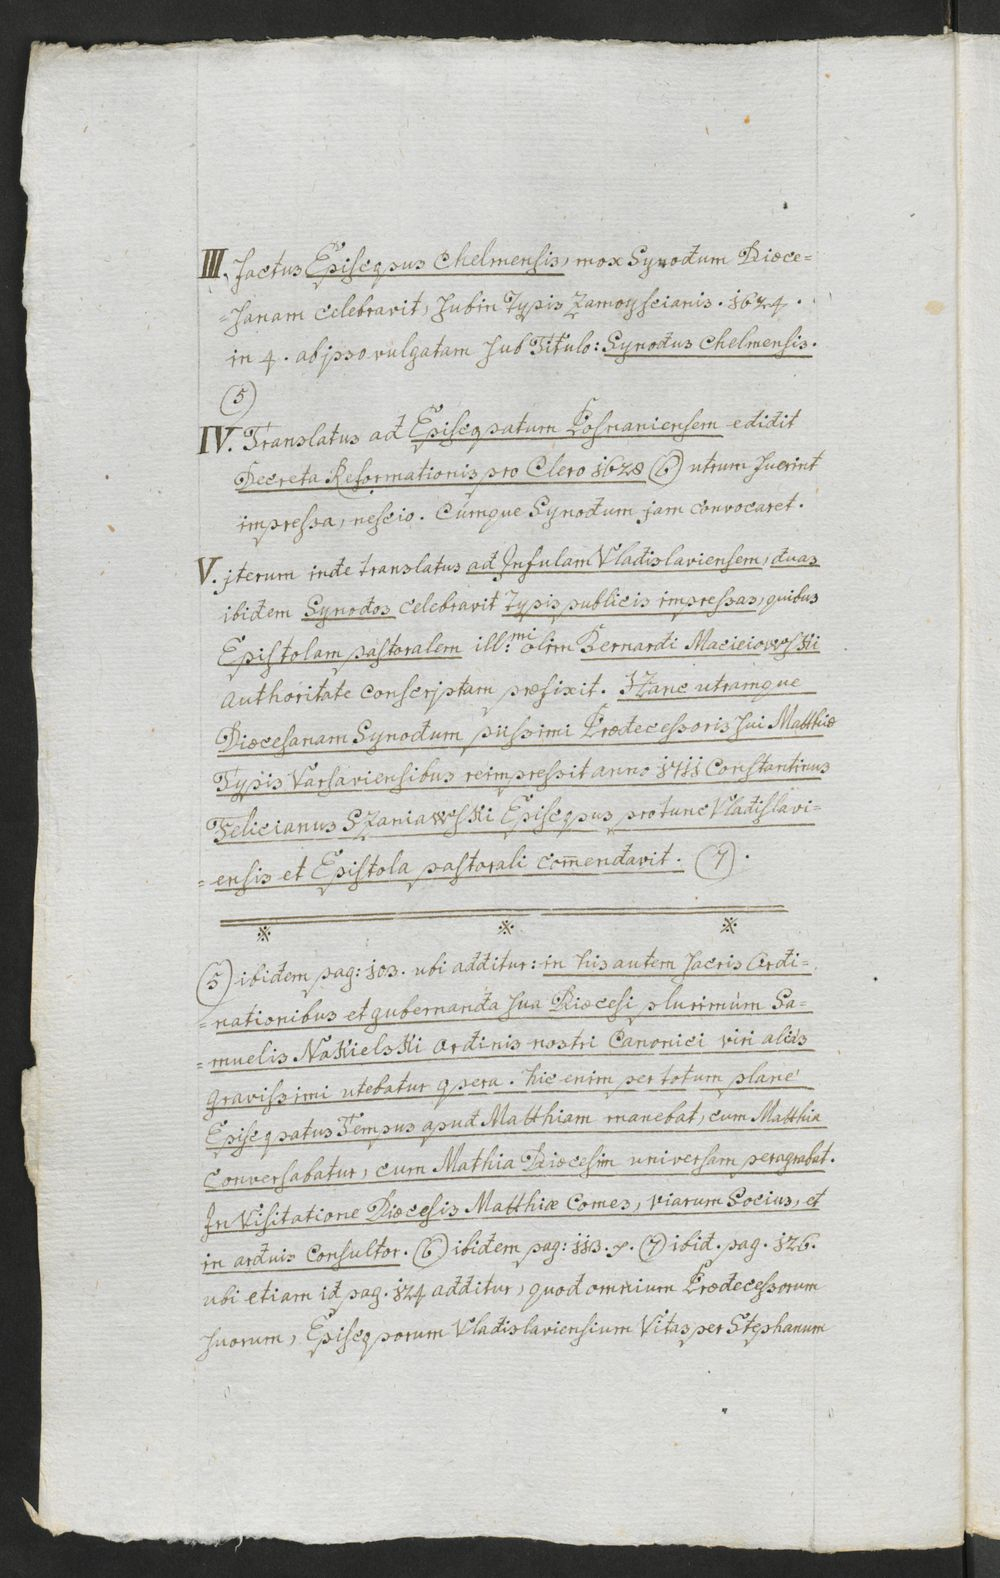 III. factus Episcopus Chelmensis, mox Synodum Diœce=
=sanam celebravit, subin Typis Zamoyscianis. 1624.
in 4. ab ipso vulgatam sub Titulo: Synodus Chelmensis.
(5)
IV. Translatus ad Episcopatum Posnaniensem edidit
Decreta Reformationis pro Clero 1628 (6) utrum fuerint
impressa, nescio. Cúmque Synodum jam convocaret.
V. jterum inde translatus ad Infulam Vladislaviensem, duas
ibidem Synodos celebravit Typis publicis impressas, quibus
Epistolam pastoralem ill:mi olim Bernardi Macieiowski
authoritate conscriptam præfixit. Hanc utramque
Diœcesanam Synodum piissimi Prædecessoris sui Matthiæ
Typis Varsáviensibus reimpressit anno 1711 Constantinus
Felicianus Szaniawski Episcopus protunc Vladislavi=
=ensis et Epistola pastorali com̄endavit. (7).
※ ※ ※
(5) ibidem pag: 103. ubi additur: in his autem sacris Ordi=
=nationibus et gubernanda sua Diœcesi plurimùm Sa=
=muelis Nakielski Ordinis nostri Canonici viri aliàs
gravissimi utebatur opera. hic enim per totum planè
Episcopatus Tempus apud Matthiam manebat, cum Matthia
Conversabatur, cum Mathia Diœcesim universam peragrabat.
In Visitatione Diœcesis Matthiæ Comes, viarum Socius, et
in arduis Consultor. (6) ibidem pag: 113. (7) ibid. pag. 126.
ubi etiam id pag. 124 additur, quod omnium Prædecessorum
suorum, Episcoporum Vladislaviensium Vitas per Stephanum